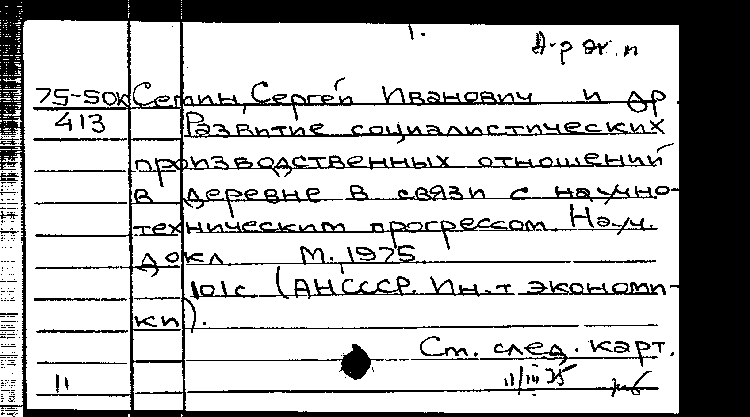 1.
Д-р эк. н
75-50к Семин, Сергей Иванович и др
413 Развитие социалистических
производственных отношений
в деревне в связи с научно-
техническим прогрессом. Науч.
докл М., 1975.
101с (АНСССР. Ин-т экономи-
ки).
Ст. след. карт.
11 11/III 75